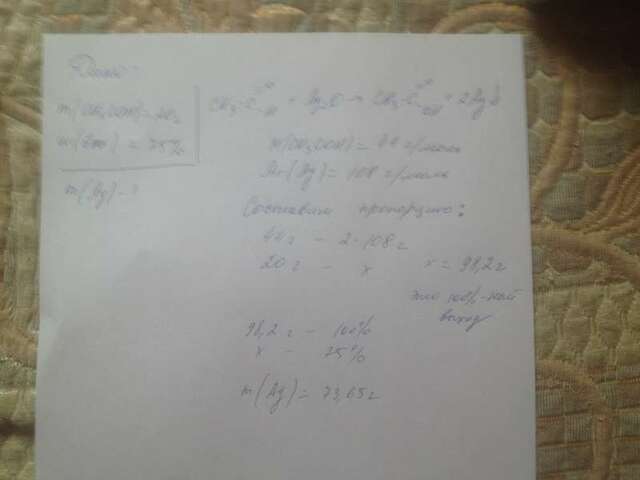 Дано:
m(CH3COH)=20г
w(вых) = 75%
m(Ag) - ?
CH3-C=O-H + Ag2O → CH3-C=O-OH + 2Ag↓
M(CH3COH) = 44 г/моль
Ar(Ag) = 108 г/моль
Составим пропорцию:
44г - 2·108г
20г - x x = 98,2г
это 100%-ный
выход
98,2г - 100%
x - 75%
m(Ag) = 73,65г